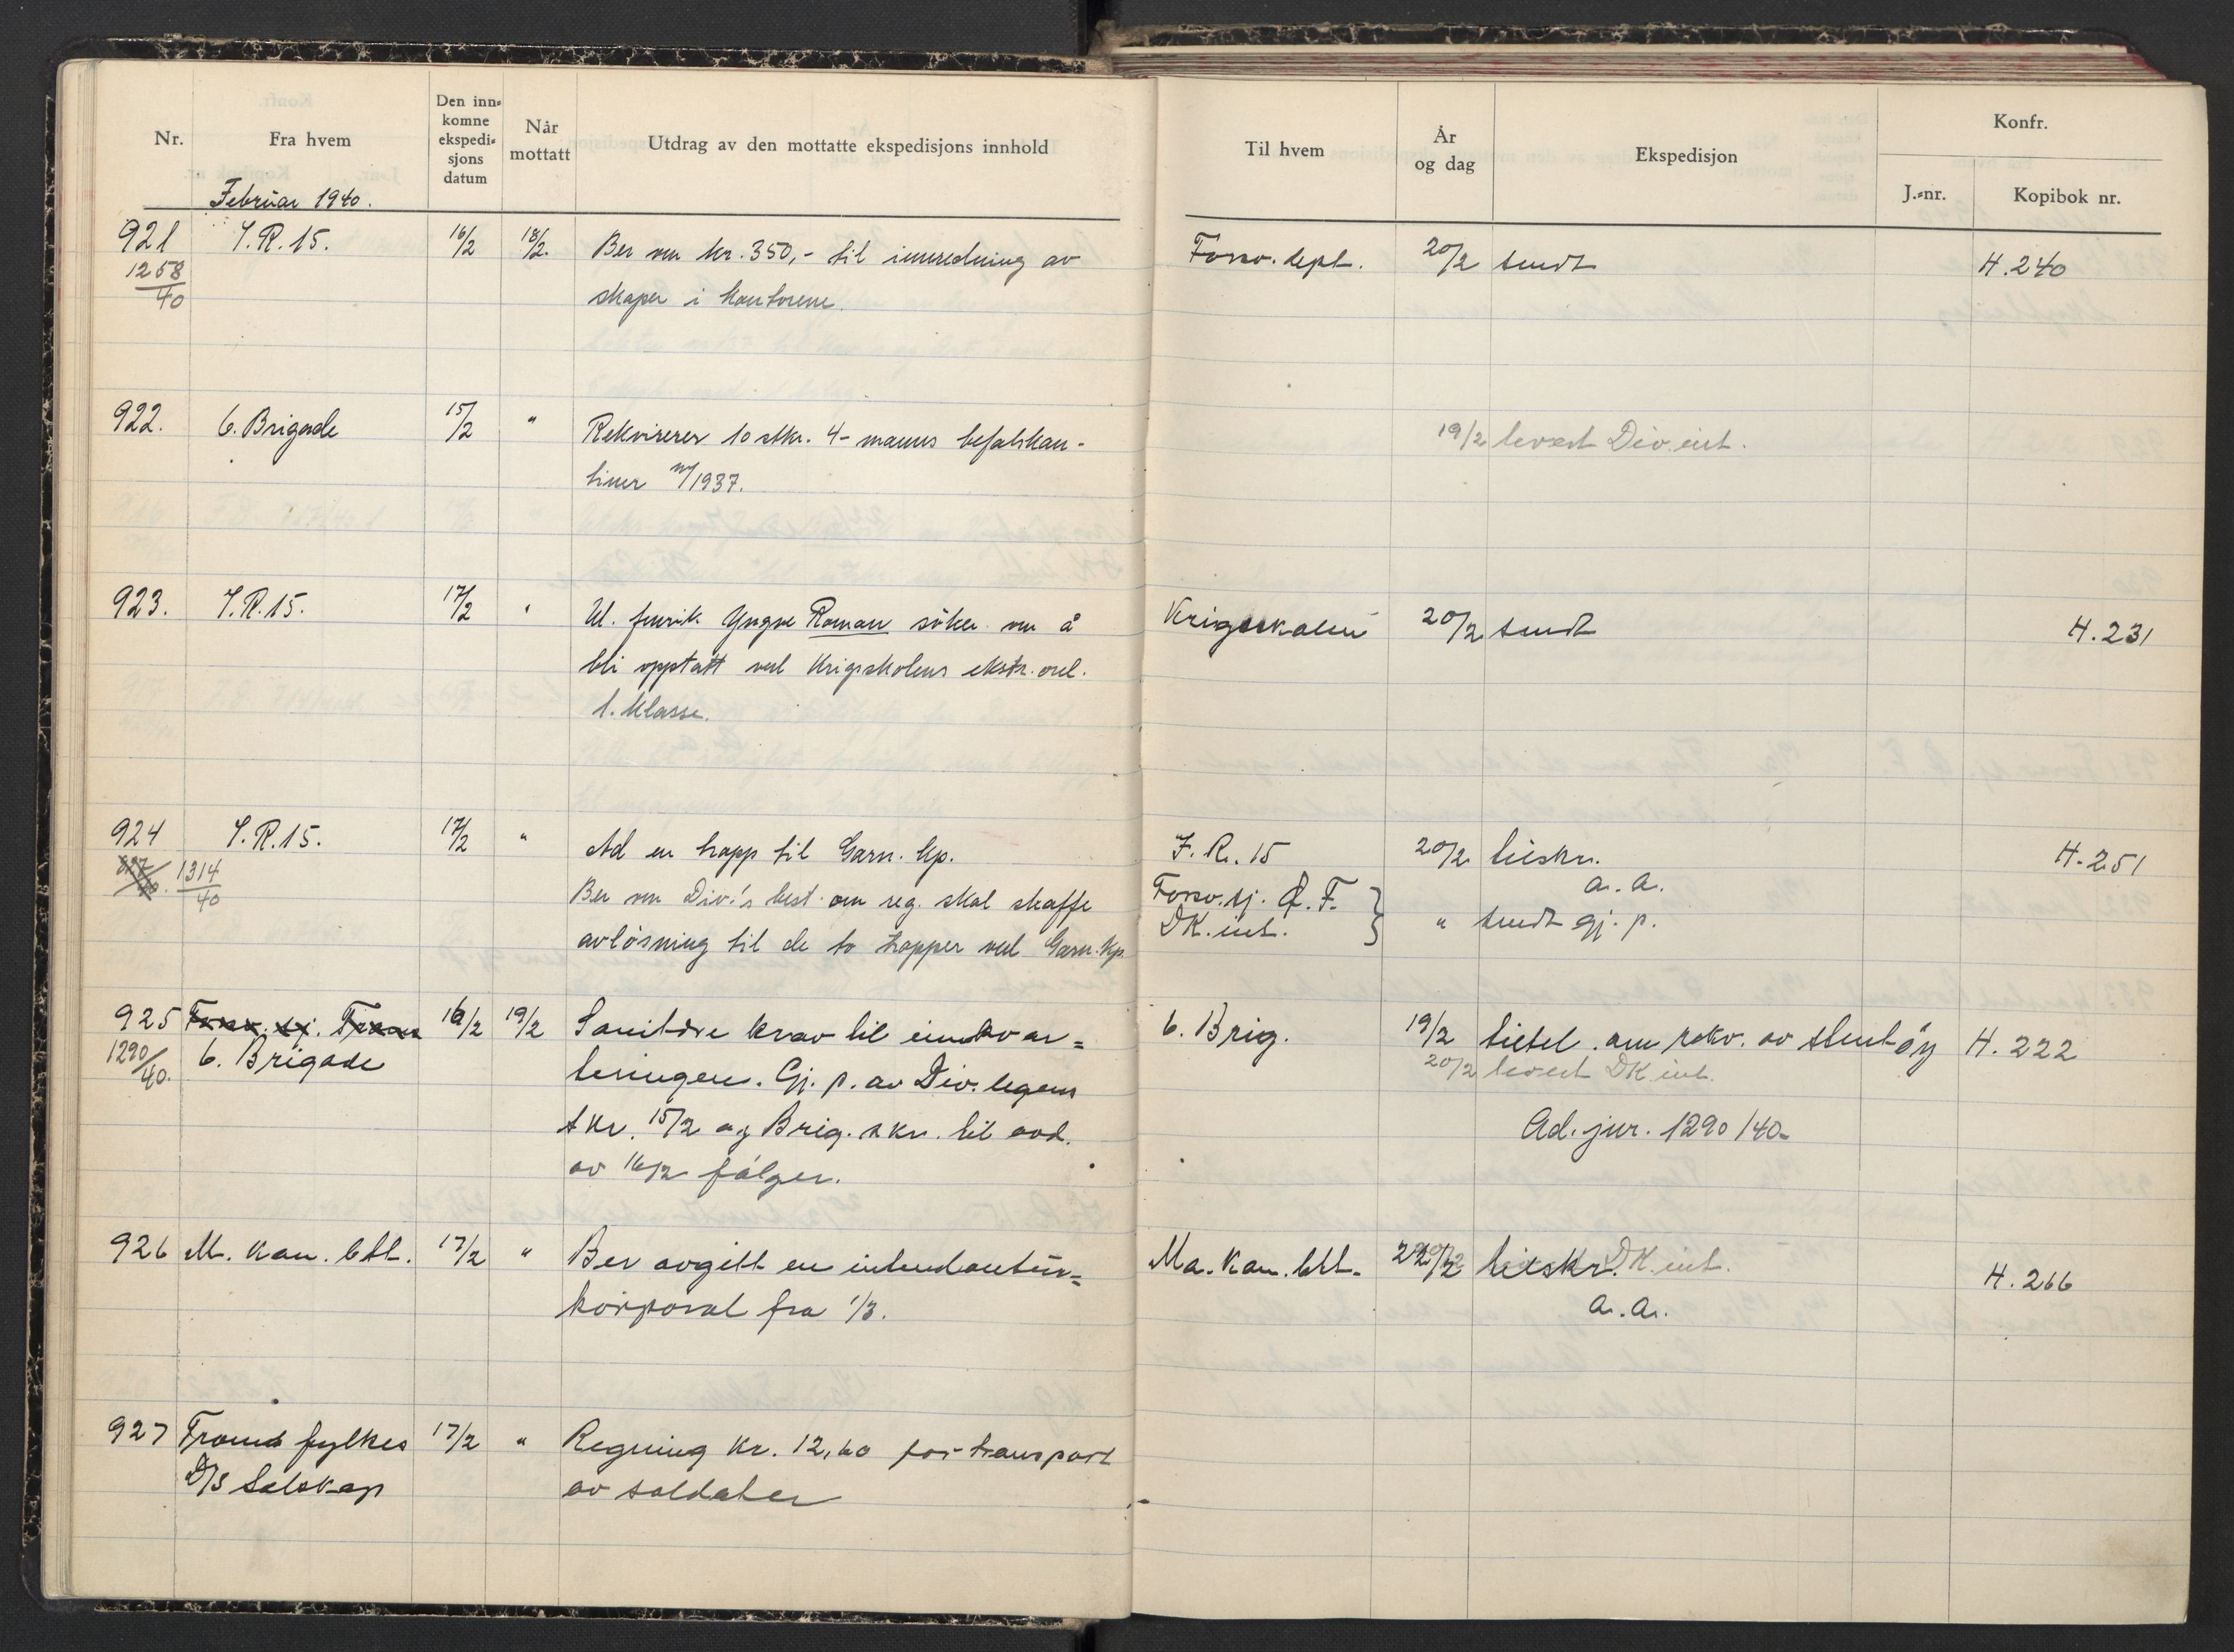 Nr.
Fra hvem
Den inn-
komne
ekspedi-
sjons
datum
Når
mottatt
Utdrag av den mottatte ekspedisjons innhold
Til hvem
År
og dag
Ekspedisjon
Konfr.
J.-nr.
Kopibok nr.
Februar 1940.
921 I.R. 15. 16/2 18/2. Ber om kr. 350,- til innredning av
1258/40 skaper i kontorene.
Forsv. dept. 20/2 sendt H. 240
922. 6. Brigade 15/2 " Rekvirerer 10 stkr. 4-manns befalskan-
tiner m/1937.
19/2 levert Div. int.
923. I.R. 15. 17/2 " Ul. fenrik Yngve Roman söker om å
bli opptatt ved Krigsskolens ekstr. ord.
1. klasse.
Krigsskolen 20/2 sendt H. 231
924 I.R. 15. 17/2 " Ad en trapp til Garn. kp.
1314/40 Ber om Div.'s best. om reg. skal skaffe
avlösning til de to trapper ved Garn. kp.
I. R. 15 20/2 tilskr. H. 251
a. a.
Forsv. sj. Q. F. }
DK. int. } " sendt gj. p.
925 Forsv. sj. Troms 16/2 19/2 Sanitære krav til innkvar=
1290/40. 6. Brigade teringen. Gj. p. av Div. legens
skr. 15/2 og Brig. skr. til avd.
av 16/2 fölger.
6. Brig. 19/2 titel. om rekv. av stentöy H. 222
20/2 levert DK int.
Ad. jnr. 1290/40.
926 M. kan. btl. 17/2 " Ber avgitt en intendantur=
korporal fra 1/3.
Ma. kan. btl. tilskr. DK. int. H. 266
a. a.
927 Troms fylkes 17/2 " Regning kr. 12,60 for transport
D/S Selskap av soldater